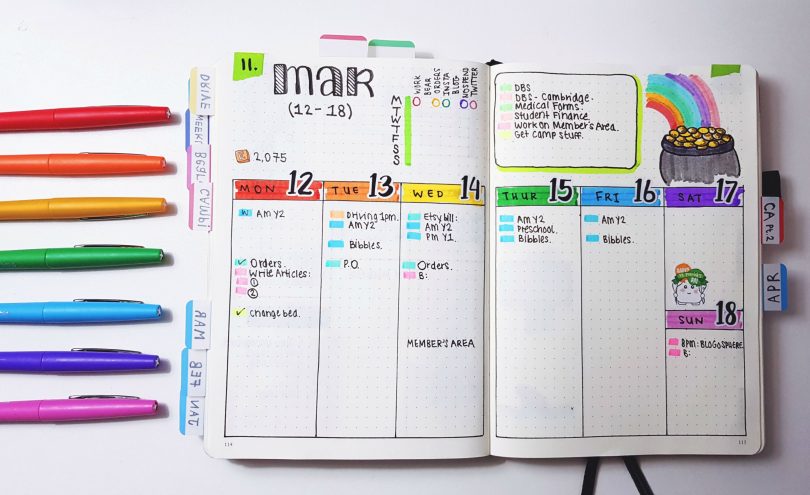 11.
MAR
(12-18)
2,075
WORK
BEAR
ORDERS
INSTA
BLOG
NOSPEND
TWITTER
M
T
W
T
F
S
S
DBS
DBS - Cambridge.
Medical Forms.
Student Finance.
Work on Member's Area.
Get camp stuff.
MON 12
W AM Y2
Orders.
Write Articles:
①
②
change bed.
TUE 13
Driving 1pm.
AM Y2
Bibbles.
P.O.
WED 14
Etsy bill:
AM Y2
PM Y1.
Orders.
B:
MEMBER'S AREA
THUR 15
AM Y2
Preschool.
Bibbles.
FRI 16
AM Y2
Bibbles.
SAT 17
SUN 18
8pm: BLOGOSPHERE
B:
114
CA Pt.2
APR
MAR
FEB
JAN